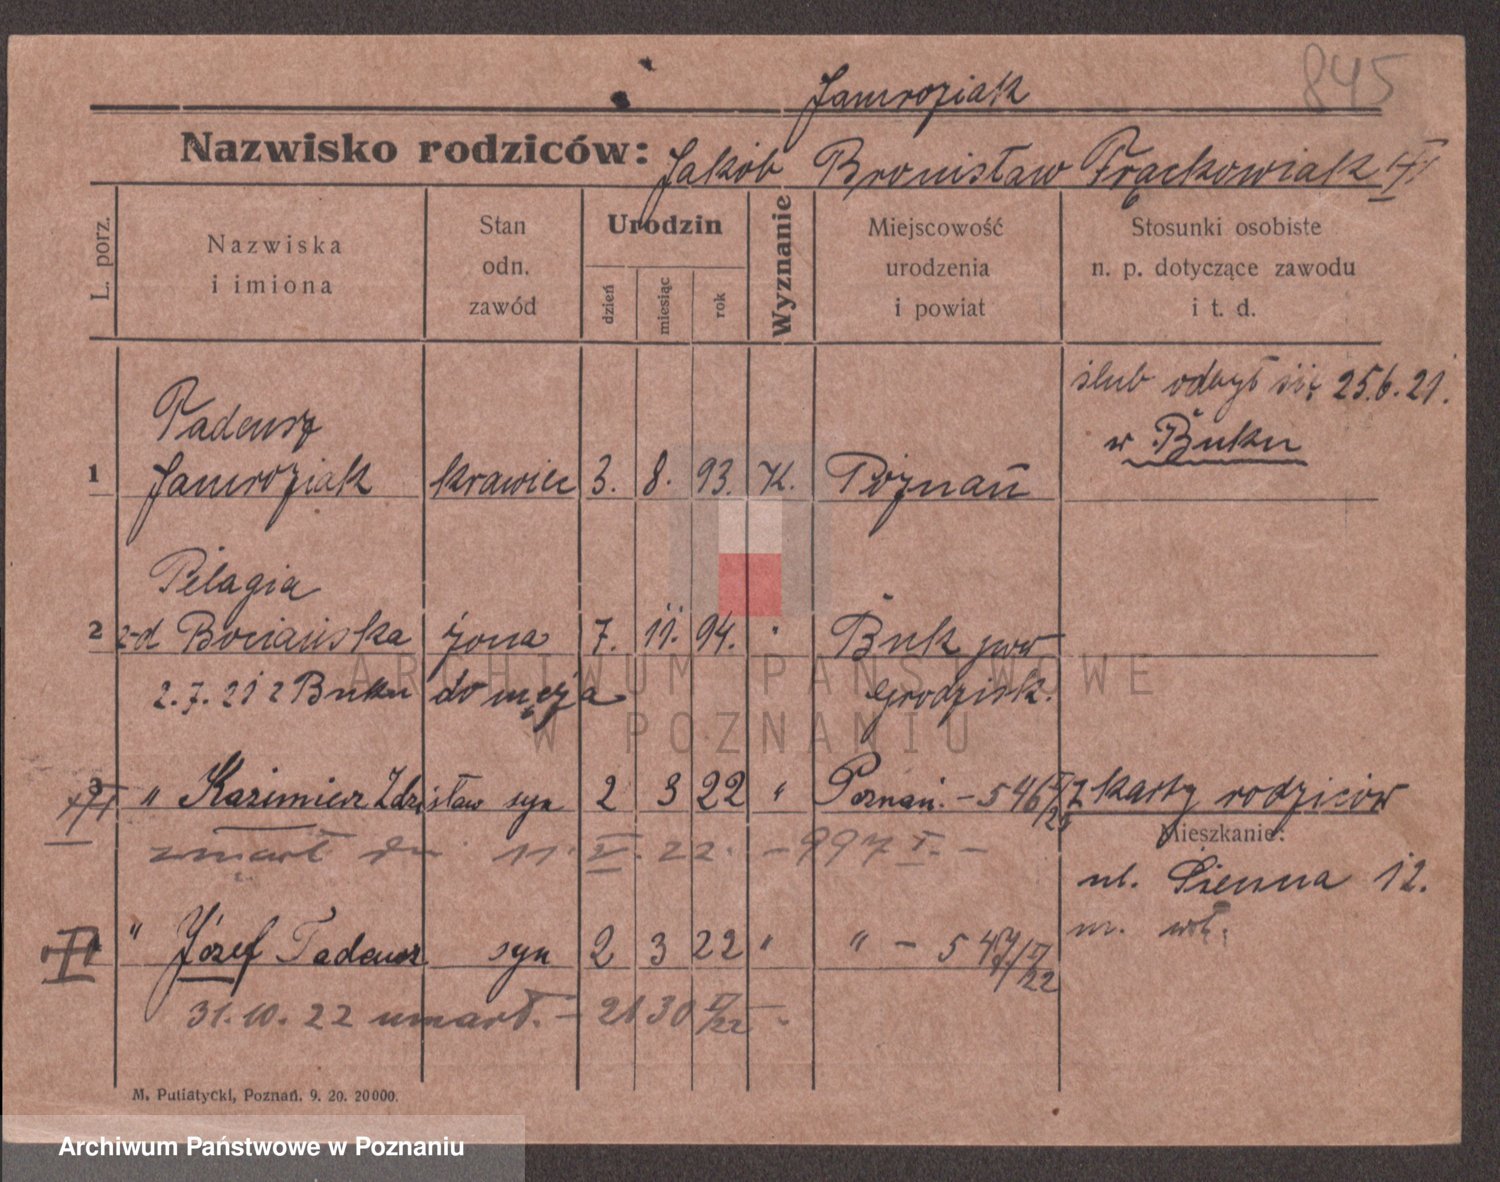 845
Jamroziak
Nazwisko rodziców: Jakób Bronisław Frąckowiak
L. porz.
Nazwiska
i imiona
Stan
odn.
zawód
Urodzin
dzień
miesiąc
rok
Wyznanie
Miejscowość
urodzenia
i powiat
Stosunki osobiste
n. p. dotyczące zawodu
i t. d.
ślub odbył się 25.6.21.
w Buku
Tadeusz
1 Jamroziak krawiec 3. 8. 93. K. Poznań
Pelagia
2 z-d Bociańska żona 7. 11. 94. " Buk pow
2.7.21 z Buku do męża Grodzisk.
3 " Kazimierz Zdzisław syn 2 3 22 " Poznań. - 546 V/22 karty rodziców
Mieszkanie:
zmarł dn 11. V. 22. - 997 V. -
ul. Sienna 12.
m. wł.
" Józef Tadeusz syn 2 3 22 " " - 547/V/22
31.10.22 umarł. - 2130 V/22 -
M. Putiatycki, Poznań. 9. 20. 20000.
ARCHIWUM PAŃSTWOWE
W POZNANIU
Archiwum Państwowe w Poznaniu